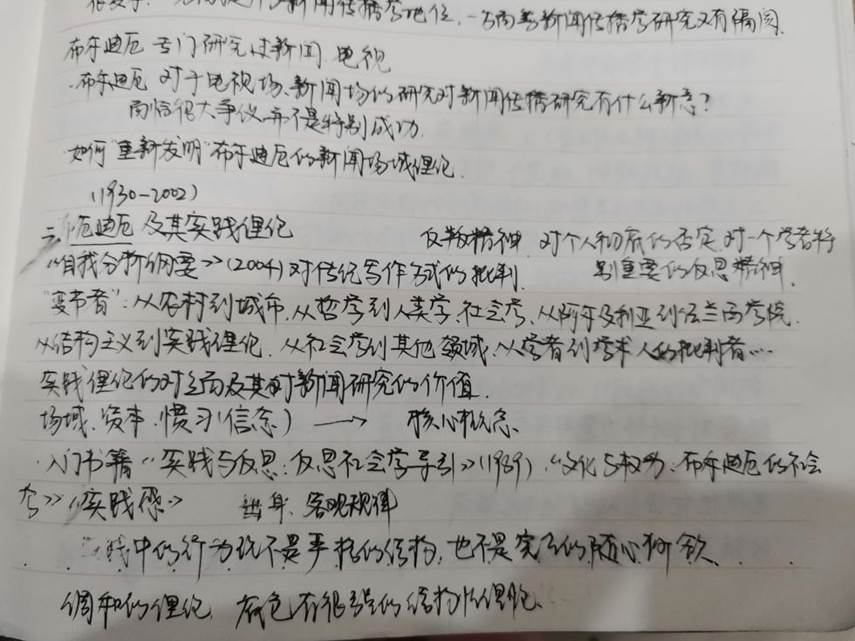 新闻传播学地位，一方面与新闻传播学研究又有隔阂.
布尔迪厄 专门研究过新闻 电视
·布尔迪厄 对于电视场、新闻场的研究对新闻传播研究有什么新意？
面临很大争议并不是特别成功.
如何"重新发明"布尔迪厄的新闻场域理论.
(1930-2002)
二、布尔迪厄及其实践理论 反叛精神 对个人彻底的否定 对一个学者特
《自我分析纲要》(2004) 对传统写作方式的批判. 别重要的反思精神.
"变节者"：从农村到城市，从哲学到人类学、社会学，从阿尔及利亚到法兰西学院.
从结构主义到实践理论，从社会学到其他领域，从学者到学术人的批判者……
实践理论的对立面及其对新闻研究的价值.
场域、资本、惯习(信念) → 核心概念
·入门书籍《实践与反思：反思社会学导引》(1989)，《文化与权力：布尔迪厄的社会
学》《实践感》 客观规律
践中的行为既不是严格的结构，也不是完全的随心所欲
调和的理论，底色有很强的结构性理论、